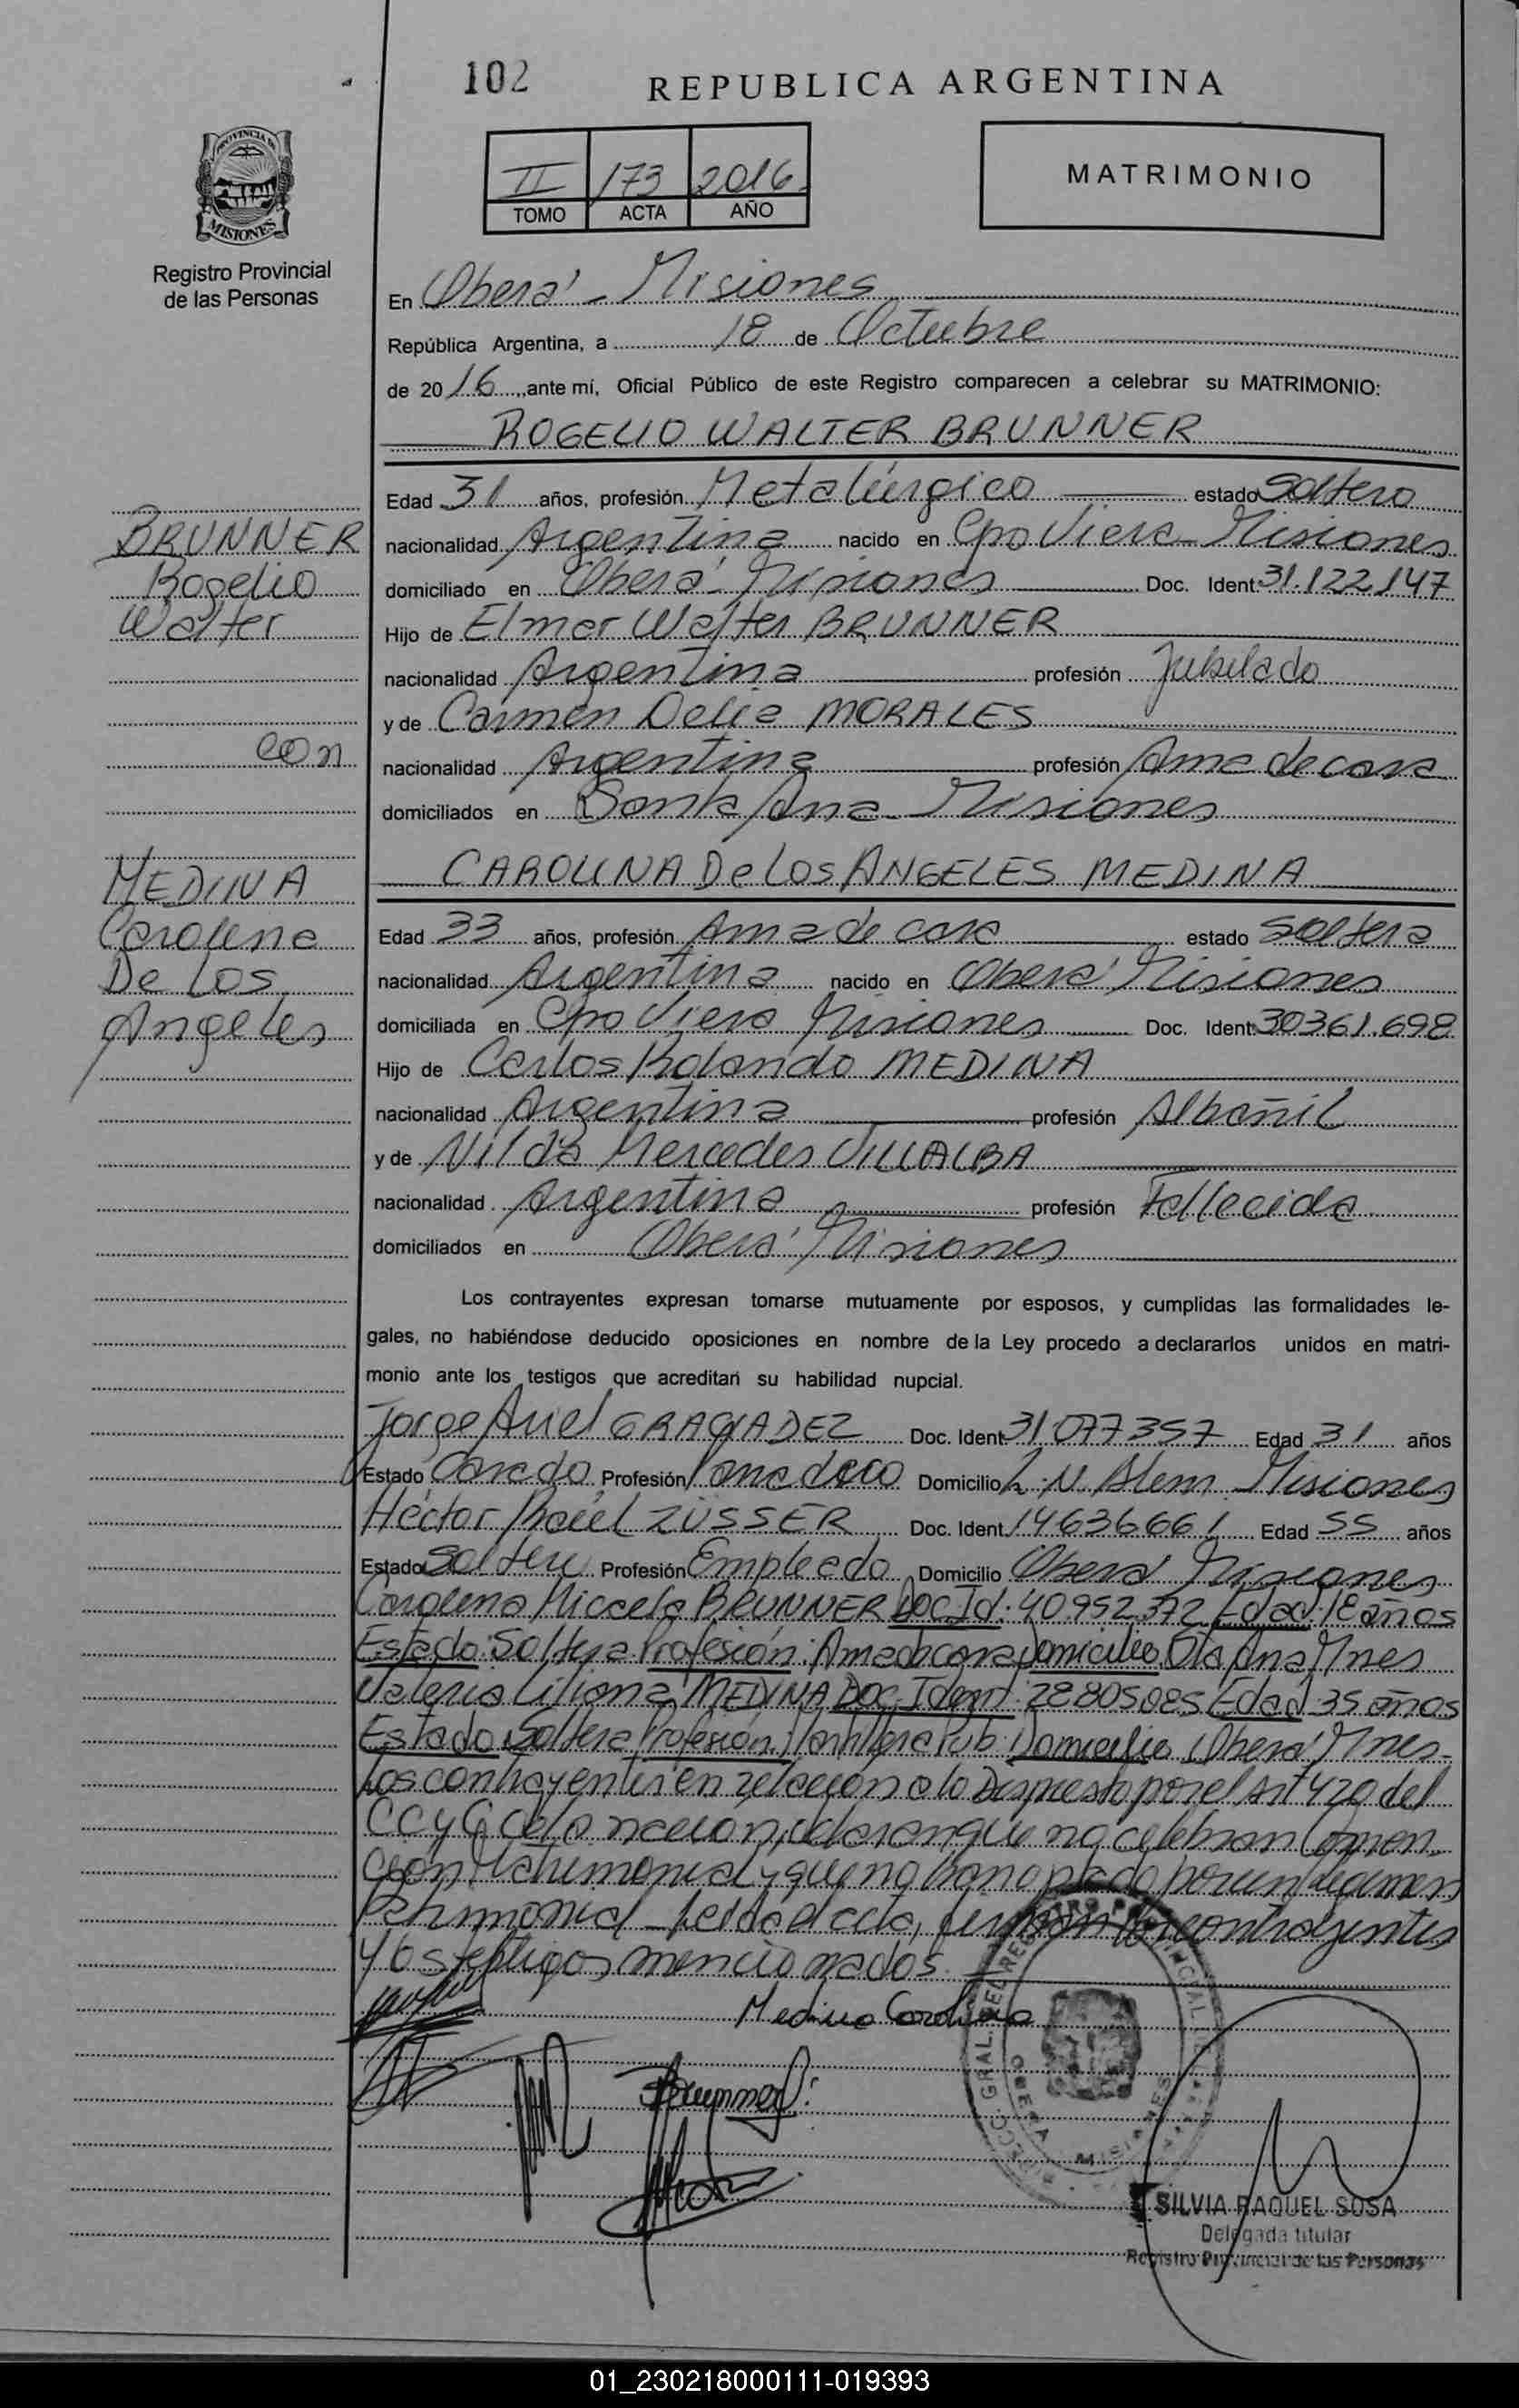 102
REPUBLICA ARGENTINA
PROVINCIA DE
MISIONES
II 173 2016
TOMO ACTA AÑO
MATRIMONIO
Registro Provincial
de las Personas
En Oberá - Misiones
República Argentina, a 18 de Octubre
de 2016, ante mí, Oficial Público de este Registro comparecen a celebrar su MATRIMONIO:
ROGELIO WALTER BRUNNER
Edad 31 años, profesión Metalúrgico estado Soltero
BRUNNER
nacionalidad Argentina nacido en Cpo Viera - Misiones
Rogelio
domiciliado en Oberá - Misiones Doc. Ident: 31.122.147
Walter
Hijo de Elmer Walter BRUNNER
nacionalidad Argentina profesión Jubilado
y de Carmen Delia MORALES
con
nacionalidad Argentina profesión Ama de casa
domiciliados en Santa Ana - Misiones
MEDINA
CAROLINA De Los ANGELES MEDINA
Carolina
Edad 33 años, profesión Ama de casa estado Soltera
De Los
nacionalidad Argentina nacido en Oberá Misiones
Angeles
domiciliada en Cpo Viera Misiones Doc. Ident: 30361.698
Hijo de Carlos Rolando MEDINA
nacionalidad Argentina profesión Albañil
y de Nilda Mercedes VILLALBA
nacionalidad Argentina profesión Fallecida
domiciliados en Oberá Misiones
Los contrayentes expresan tomarse mutuamente por esposos, y cumplidas las formalidades le-
gales, no habiéndose deducido oposiciones en nombre de la Ley procedo a declararlos unidos en matri-
monio ante los testigos que acreditan su habilidad nupcial.
Jorge Ariel Doc. Ident: 31077357 Edad 31 años
Estado Casado Profesión Domicilio L. N. Alem Misiones
Héctor Raúl ZÜSSER Doc. Ident. 14636661 Edad 55 años
Estado Soltero Profesión Empleado Domicilio Oberá Misiones
Carolina Micaela BRUNNER Doc Id: 40.952.372 Edad: 18 años
Estado: Soltera Profesión: Ama de casa Domicilio Sta Ana Mnes
Valeria Liliana MEDINA Doc. Ident: 28805085 Edad 35 años
Estado Soltera Profesión Pub. Domicilio Oberá Mnes-
Los contrayentes en relación a lo Dispuesto por el Art 420 del
CC y C de la nación, declaran que no celebran Conven-
ción Matrimonial y que no han optado por un régimen
Patrimonial - Leída el acta, firman los contrayentes
y los testigos mencionados.
Medina Carolina
Brunner
SILVIA RAQUEL SOSA
Delegada titular
Registro Provincial de las Personas
01_230218000111-019393